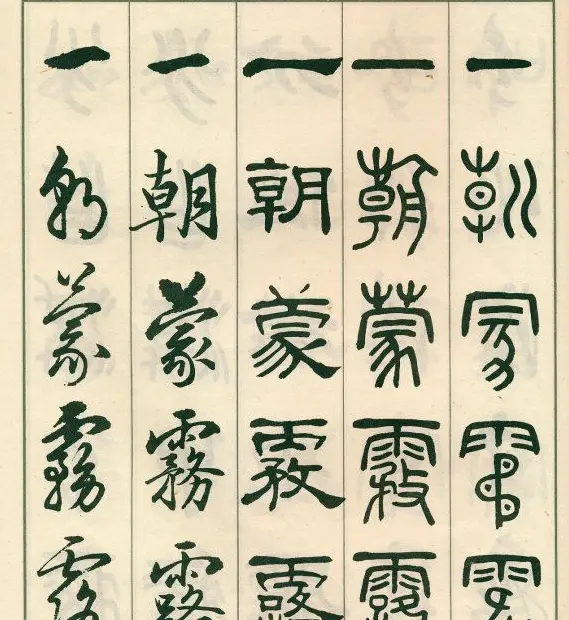 一朝蒙霧露
一朝蒙霧露
一朝蒙霧露
一朝蒙霧露
一朝蒙霧露